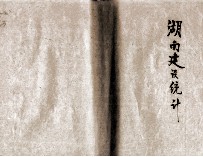 湖南建设统计